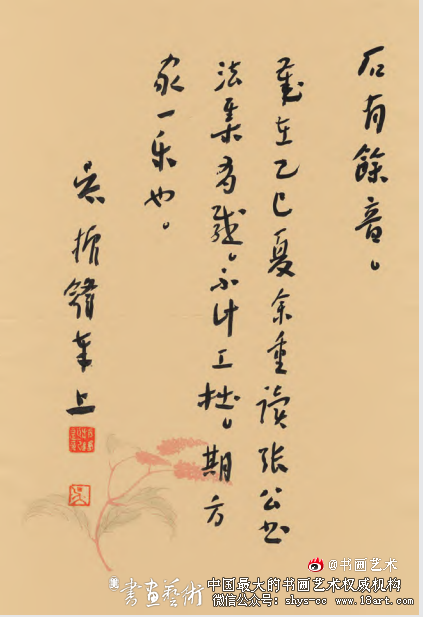 石有餘音。
歲在乙巳夏余重读张公书
法集有感。不计工拙。期方
家一乐也。
吴振锋奉上
@书画艺术
書画藝術
中国最大的书画艺术权威机构
微信公众号：shys-cc www.18art.com